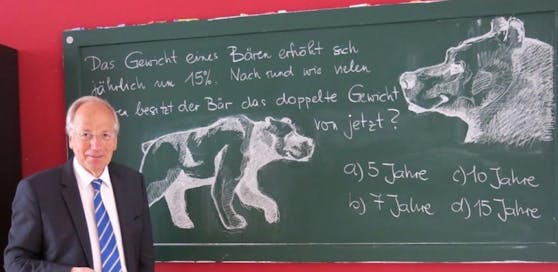 Das Gewicht eines Bären erhöht sich
jährlich um 15%. Nach rund wie vielen
besitzt der Bär das doppelte Gewicht
von jetzt?
a) 5 Jahre c) 10 Jahre
b) 7 Jahre d) 15 Jahre